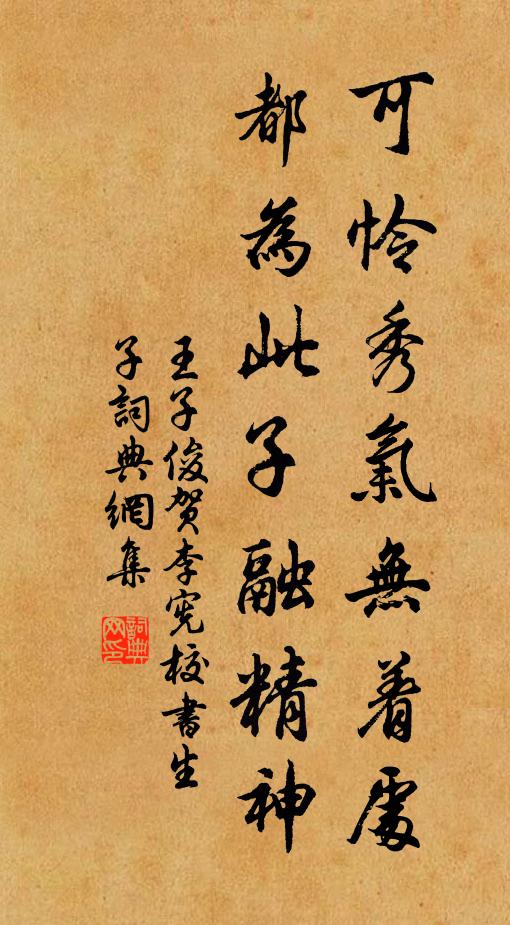 可怜秀氣無着處
都為此子融精神
王子俊賀李寃校書生
子詞典網集
詞典
网印